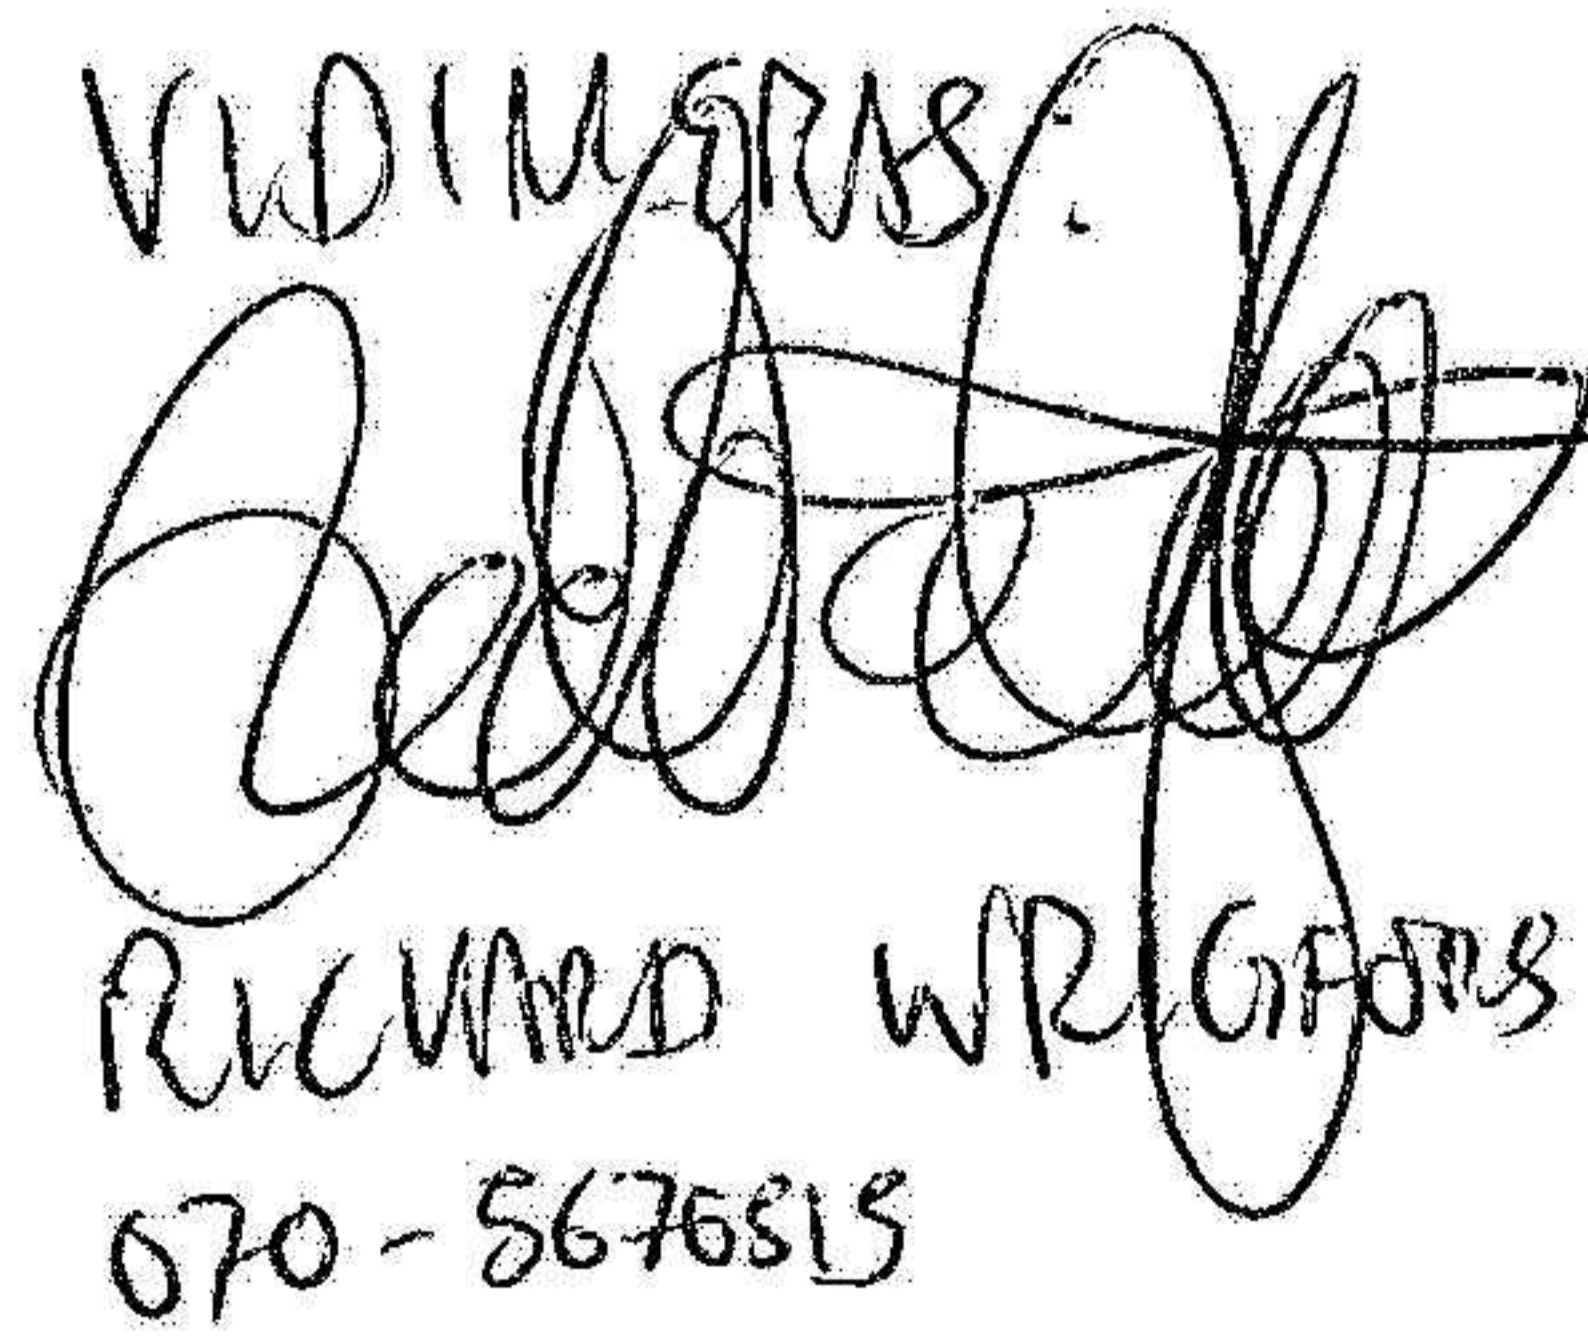 VIDIMERAS:
RICHARD WRIGFORS
070-5676515